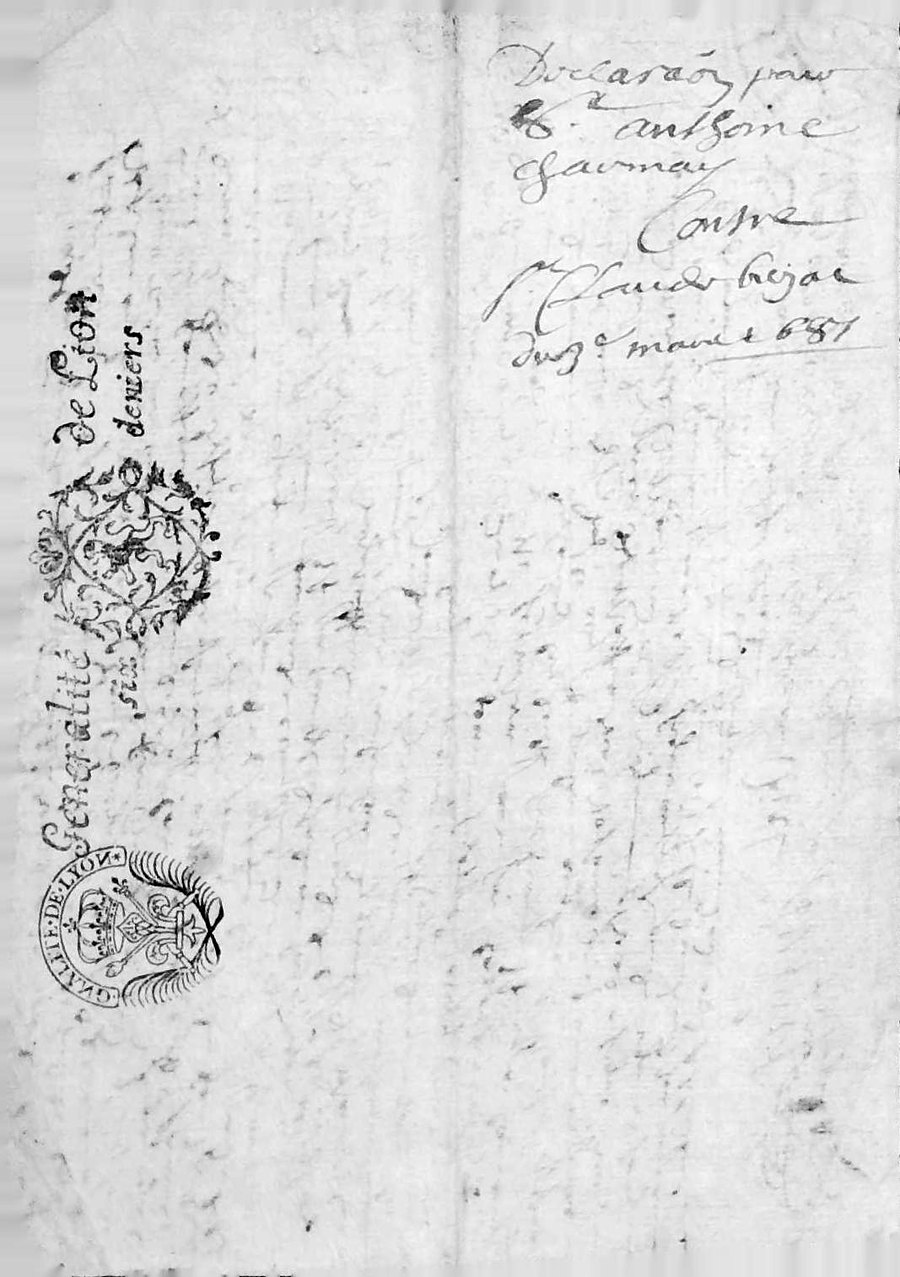 Declaraõn pour
Sr. anthoine
charmay
Contre
sr. Claude
du 3e mars 1687
Generalité de Lion
six deniers
GNALITE·DE·LYON